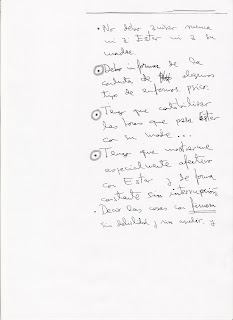 • No debo juzgar nunca
ni a Ester ni a su
madre
• Debo informar de la
conducta de algunos
tipo de enfermos psico.
• Tengo que contabilizar
las horas que pasa Ester
con su madre...
• Tengo que mostrarme
especialmente afectivo
con Ester y de forma
constante sin interrupción
• Decir las cosas con firmeza
sin debilidad y sin, y